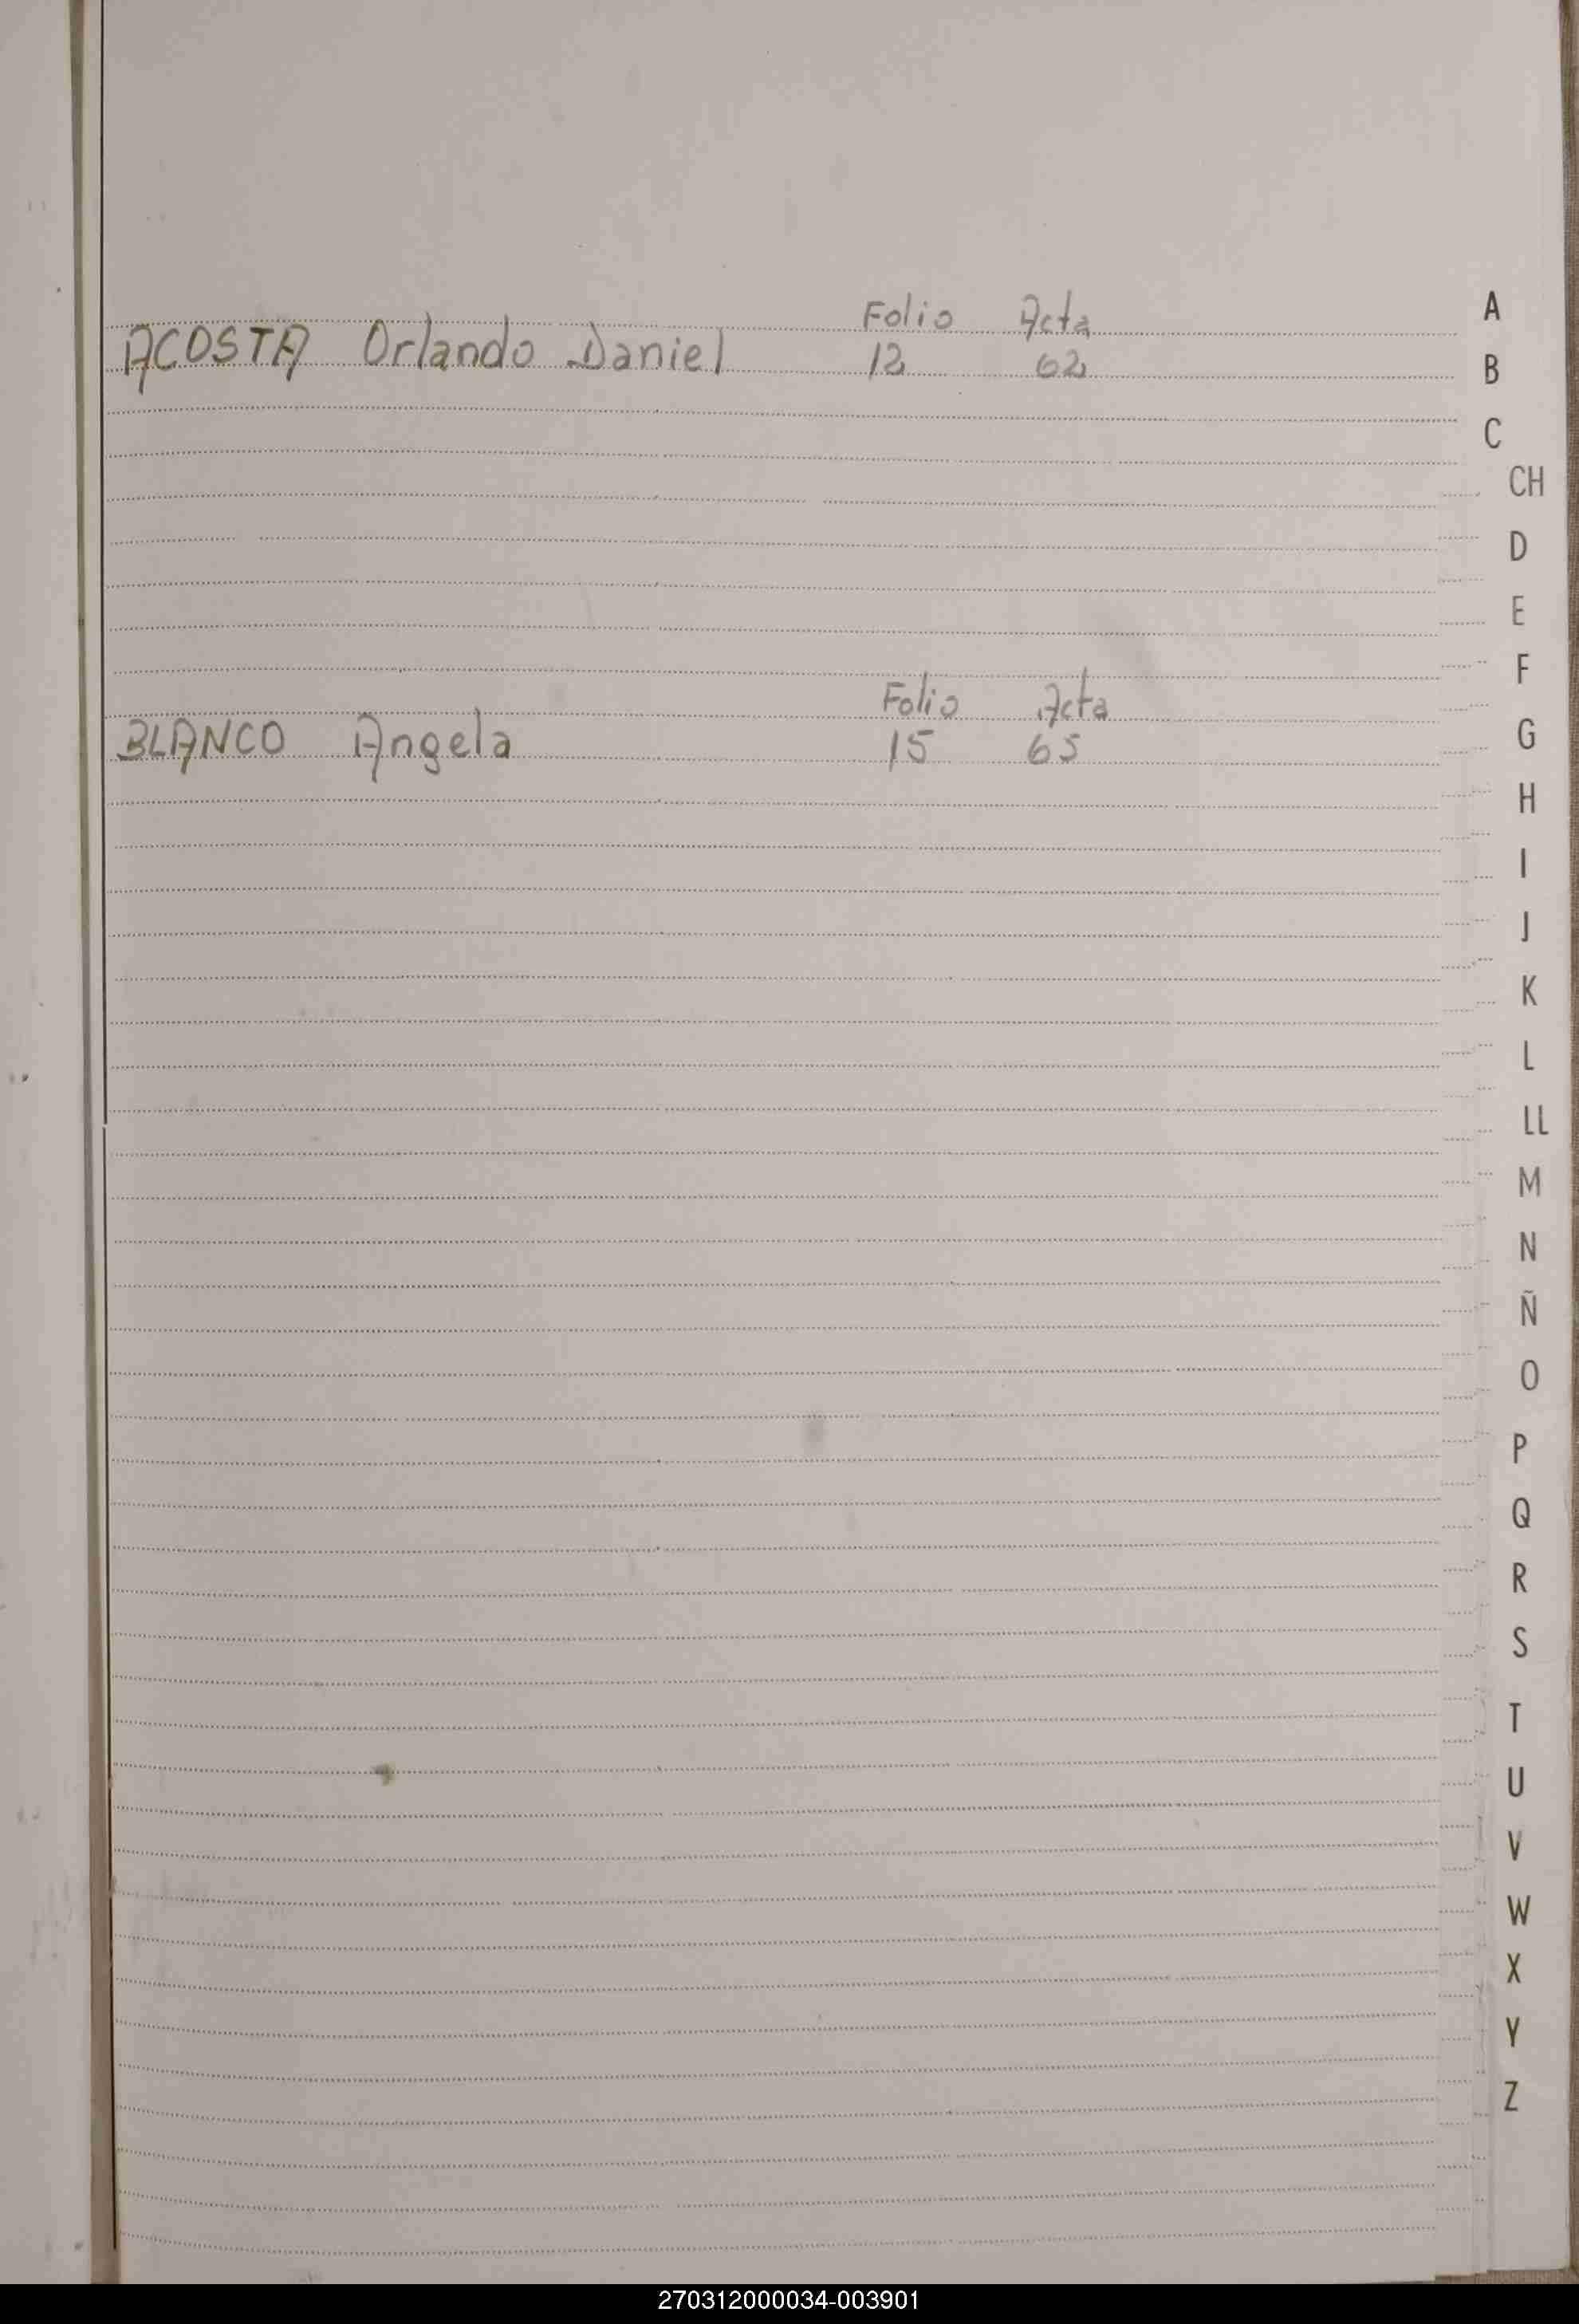 Folio Acta
ACOSTA Orlando Daniel 12 62
Folio Acta
BLANCO Angela 15 65
A
B
C
CH
D
E
F
G
H
I
J
K
L
LL
M
N
Ñ
O
P
Q
R
S
T
U
V
W
X
Y
Z
270312000034-003901